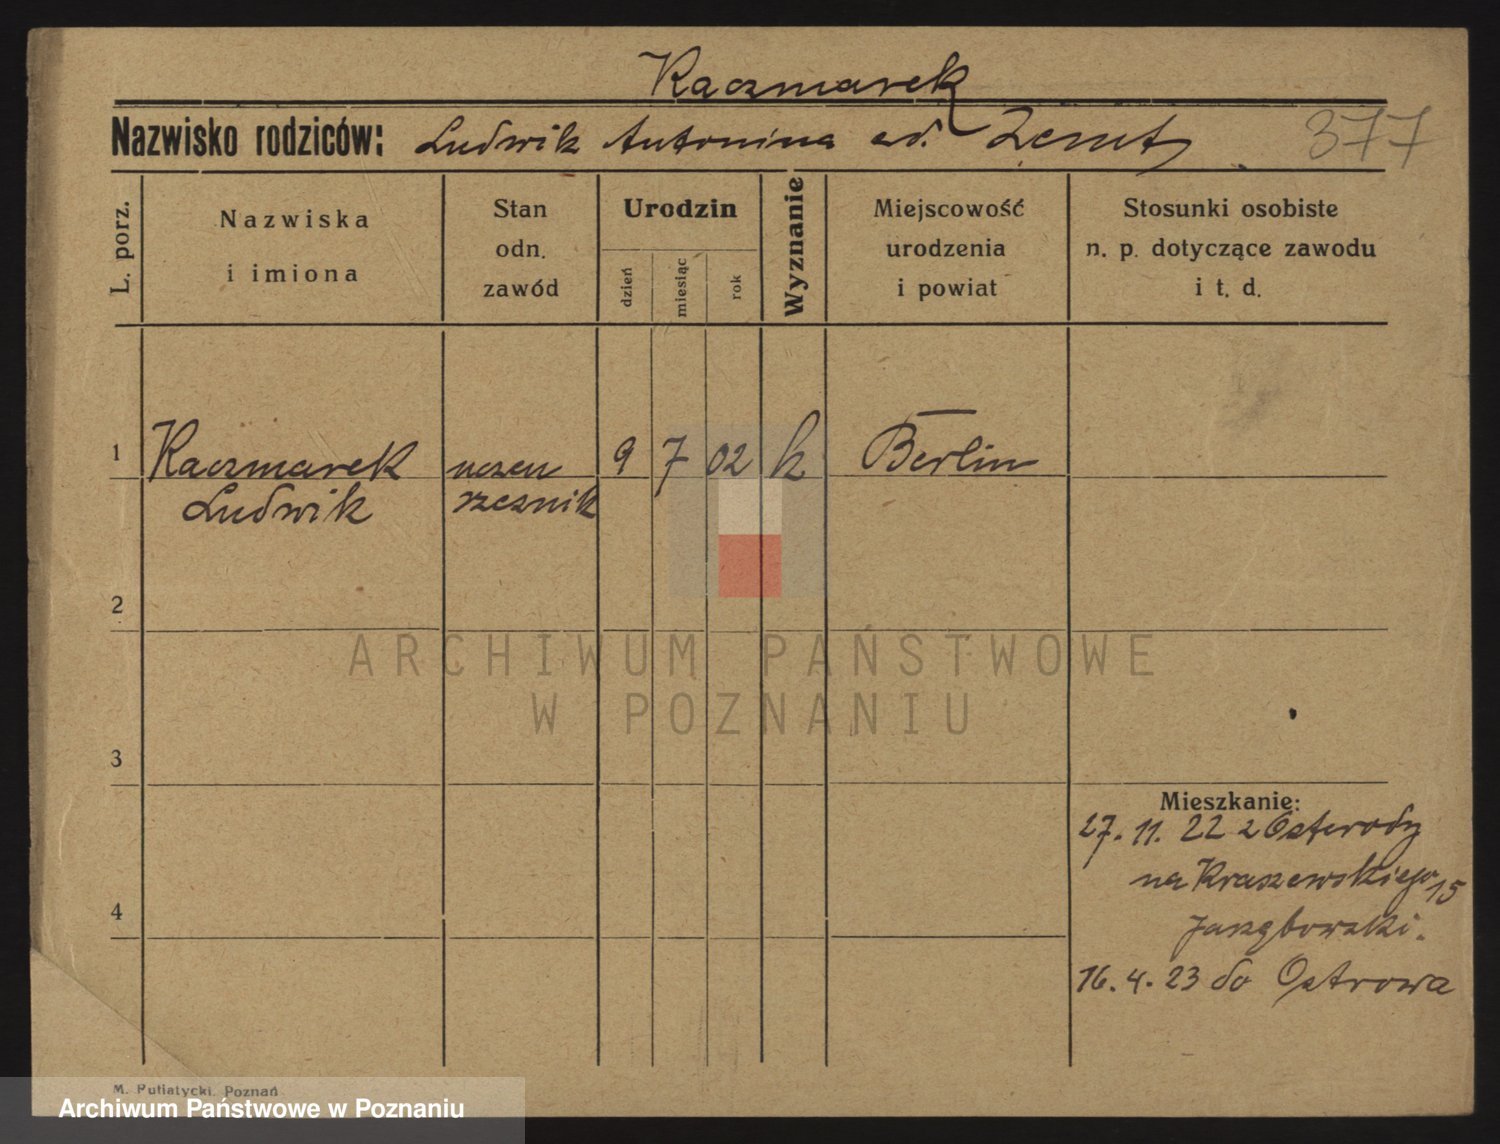 Kaczmarek
Nazwisko rodziców: Ludwik Antonina
377
L. porz.
Nazwiska
i imiona
Stan
odn.
zawód
Urodzin
dzień
miesiąc
rok
Wyznanie
Miejscowość
urodzenia
i powiat
Stosunki osobiste
n. p. dotyczące zawodu
i t. d.
1 Kaczmarek uczeń 9 7 02 k Berlin
Ludwik rzeźnik
2
ARCHIWUM PAŃSTWOWE
W POZNANIU
3
Mieszkanie:
27. 11. 22 z Osterody
na Kraszewskiego 15
4
16. 4. 23 do Ostrowa
M. Putiatycki, Poznań
Archiwum Państwowe w Poznaniu